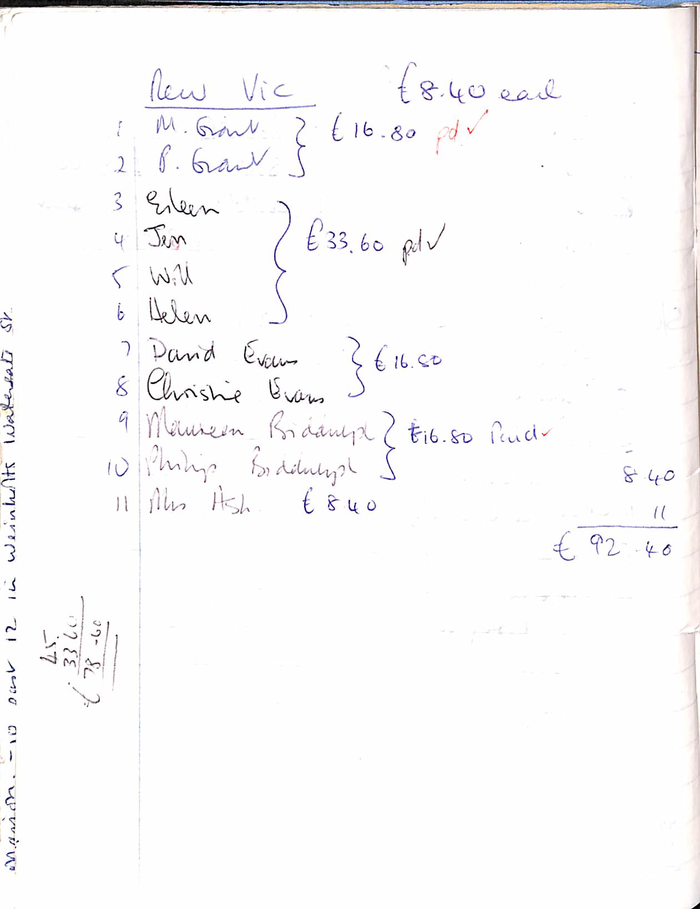 New Vic £8.40 each
1 M. Grant £16.80 pd ✓
2 P. Grant
3 Eileen
4 Jen £33.60 pd ✓
5 Will
6 Helen
7 David Evans £16.80
8 Christie Evans
9 Maureen Biddulph £16.80 Paid ✓
10 Philip Biddulph
8 40
11 Ash £8 40
11
£ 92.40
45.
33 60
£ 78-60
Marion. - 10 past 12 in St.